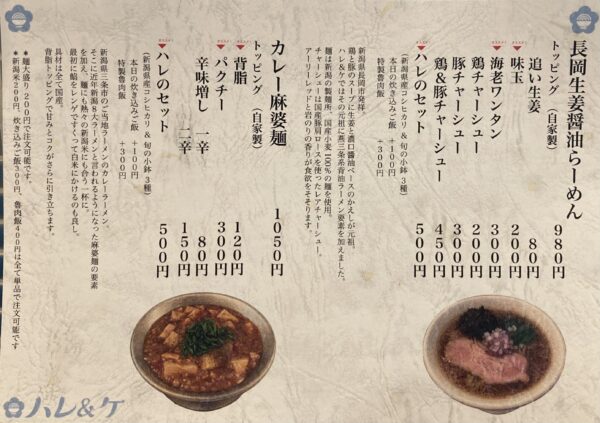 長岡生姜醤油らーめん 980円
トッピング（自家製）
追い生姜 80円
味玉 200円
海老ワンタン 300円
鶏チャーシュー 200円
豚チャーシュー 300円
鶏&豚チャーシュー 450円
ハレのセット 500円
（新潟県産コシヒカリ & 旬の小鉢3種）
本日の炊き込みご飯 +100円
特製魯肉飯 +300円
新潟県長岡市発祥、
鶏と豚のスープに生姜と濃口醤油ベースのかえしが元祖。
ハレ&ケではその元祖に燕三条系背油ラーメン要素を加えました。
麺は新潟の製麺所、国産小麦100%の麺を使用。
チャーシューは国産豚肩ロースを使ったレアチャーシュー。
アーリーレッドと岩のりの香りが食欲をそそります。
カレー麻婆麺 1050円
トッピング（自家製）
背脂 120円
パクチー 300円
辛味増し 一辛 80円
二辛 150円
ハレのセット 500円
（新潟県産コシヒカリ & 旬の小鉢3種）
本日の炊き込みご飯 +100円
特製魯肉飯 +300円
新潟県三条市のご当地ラーメンのカレーラーメン、
そこに近年新潟8大ラーメンと言われるようになった麻婆麺の要素
を加え、麺にも熱々の新潟米にも合う一杯に。
最初に蝦をレンゲですくって白米にかけるのも良し。
具材は全て国産。
背脂トッピングで甘みとコクがさらに引き立ちます。
*麺大盛り200円で注文可能です。
*新潟米200円、炊き込みご飯300円、魯肉飯400円は全て単品で注文可能です
ハレ&ケ